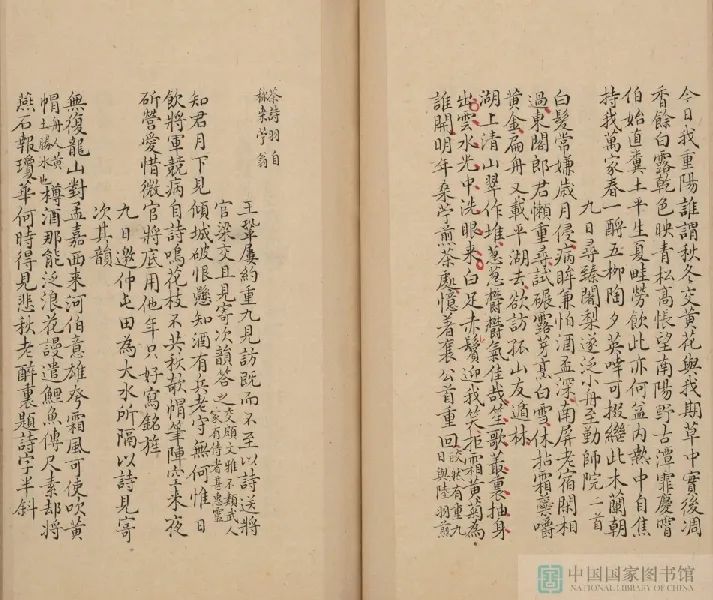 今日我重陽誰謂秋冬交黃花與我期草中實後凋
香餘白露乾色映青松高悵望南陽野古潭霏慶霄
伯始直糞土平生夏畦勞飲此亦何益內熱中自焦
持我萬家春一酹五柳陶夕英幸可掇繼此木蘭朝
九日尋臻闍梨遂泛小舟至勤師院二首
白髮常嫌歲月侵病眸兼怕酒盃深南屏老宿閑相
過東閣郎君懶重尋試碾露芽烹白雪休拈霜蘂嚼
黃金扁舟又載平湖去欲訪孤山支遁林
湖上青山翠作堆蔥蔥鬱鬱氣佳哉笙歌叢裏抽身
出雲水光中洗眼來白足赤髭迎我笑拒霜黃菊為
誰開明年桑苧煎茶處憶著衰公首重回皎然有重九日與陸羽煎
茶詩羽自號桑苧翁
王鞏屢約重九見訪既而不至以詩送將
官梁交且見寄次韻答之交頗文雅不類武人家有侍者甚惠麗
知君月下見傾城破恨懸知酒有兵老守無何惟日
飲將軍競病自詩鳴花枝不共秋欹帽筆陣空來夜
斫營愛惜微官將底用他年只好寫銘旌
九日邀仲屯田為大水所隔以詩見寄
次其韻
無復龍山對孟嘉西來河伯意雄夸霜風可使吹黃
帽舟人黃帽土勝水也樽酒那能泛浪花謾遣鯉魚傳尺素却將
燕石報瓊華何時得見悲秋老醉裏題詩字半斜
中国国家图书馆
NATIONAL LIBRARY OF CHINA